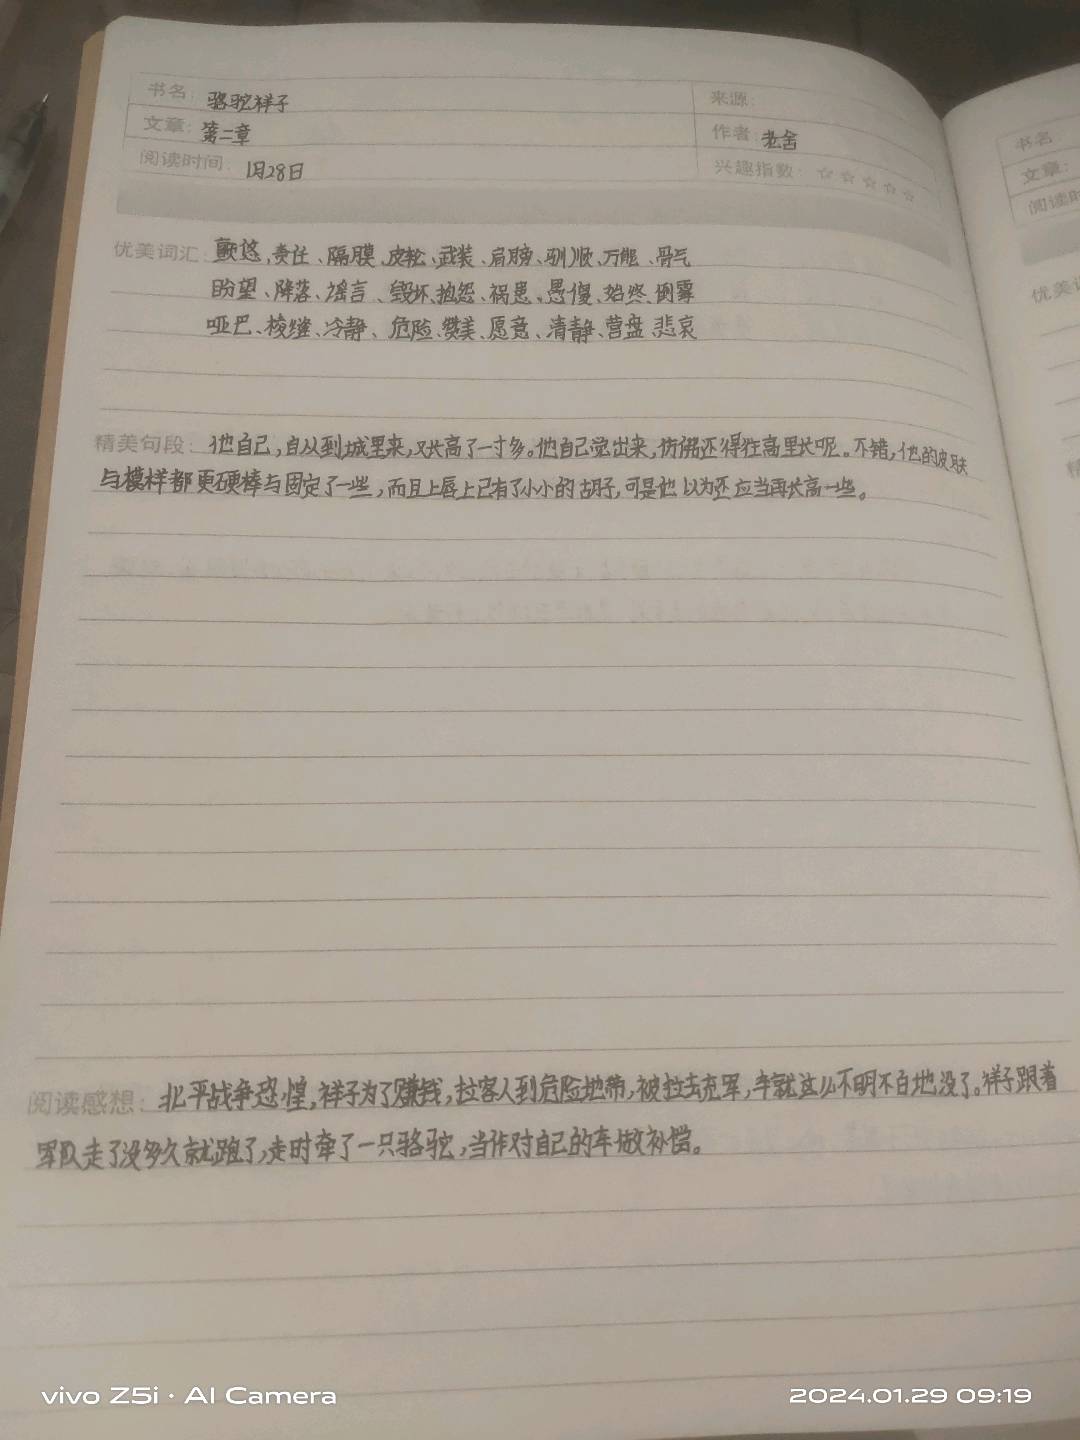 书名: 骆驼祥子
来源:
文章: 第二章
作者: 老舍
阅读时间: 1月28日
兴趣指数: ☆☆☆☆☆
优美词汇: 颤悠、责任、隔膜、皮轮、武装、肩膀、驯顺、万能、骨气
盼望、降落、谣言、毁坏、抱怨、祸患、愚傻、始终、倒霉
哑巴、棱缝、冷静、危险、赞美、愿意、清静、营盘、悲哀
精美句段: 他自己,自从到城里来,又长高了一寸多。他自己觉出来,仿佛还得往高里长呢。不错,他的皮肤
与模样都更硬棒与固定了一些,而且上唇上已有了小小的胡子,可是他以为还应当再长高一些。
阅读感想: 北平战争恐惶,祥子为了赚钱,拉客人到危险地带,被拉去充军,车就这么不明不白地没了。祥子跟着
军队走了没多久就跑了,走时牵了一只骆驼,当作对自己的车做补偿。
书名
文章:
阅读时
优美词
精
vivo Z5i · AI Camera
2024.01.29 09:19